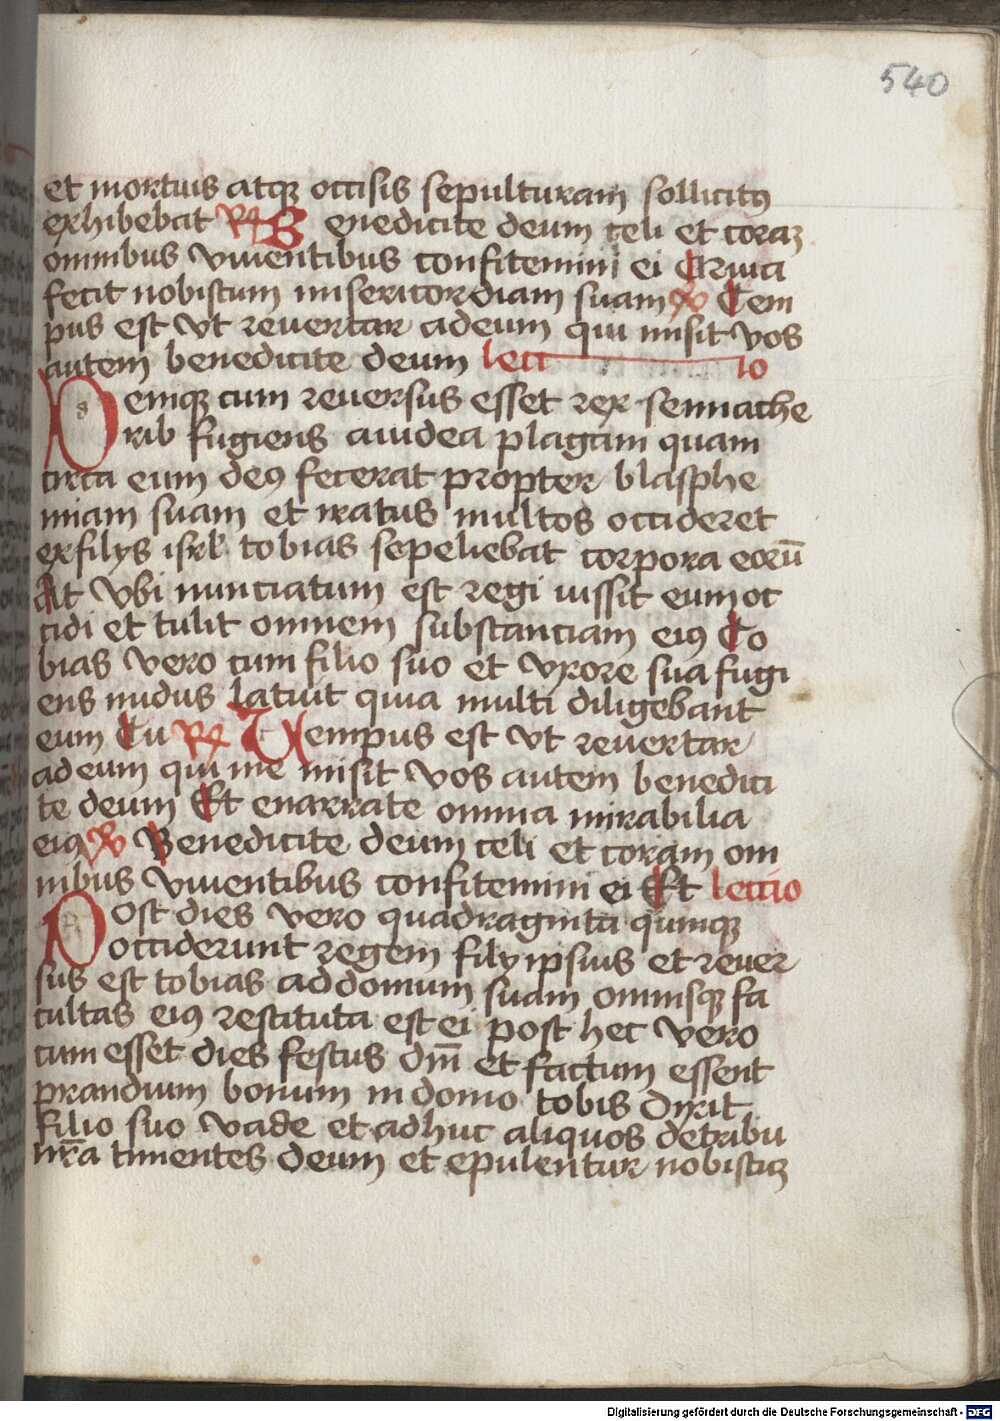 540
et mortuis atqꝫ occisis sepulturam sollicitꝯ
exhibebat ℟ Benedicite deum celi et coraꝫ
omnibus viuentibus confitemini ei Quia
fecit nobiscum misericordiam suam ℣ Tem
pus est vt reuertar adeum qui misit vos
autem benedicite deum lectio
Demqꝫ cum reuersus esset rex sennache
rib fugiens aiudea plagam quam
circa eum deꝯ fecerat propter blasphe
miam suam et iratus multos occideret
exfilijs isrl tobias sepeliebat corpora eorū
At vbi nunciatum est regi iussit eum oc
cidi et tulit omnem substanciam eiꝯ To
bias vero cum filio suo et vxore sua fugi
ens nudus latuit quia multi diligebant
eum Tu ℟ Tempus est vt reuertar
ad eum qui me misit vos autem benedici
te deum Et enarrate omnia mirabilia
eiꝯ ℣ Benedicite deum celi et coram om
nibus viuentibus confitemini ei Et lectio
Post dies vero quadraginta quinqꝫ
occiderunt regem filij ipsius et reuer
sus est tobias addomum suam omnisqꝫ fa
cultas eiꝯ restituta est ei post hec vero
cum esset dies festus dn̄i et factum essent
prandium bonum in domo tobis dixit
filio suo vade et adhuc aliquos detribu
nr̄a timentes deum et epulentur nobiscꝫ
Digitalisierung gefördert durch die Deutsche Forschungsgemeinschaft - DFG